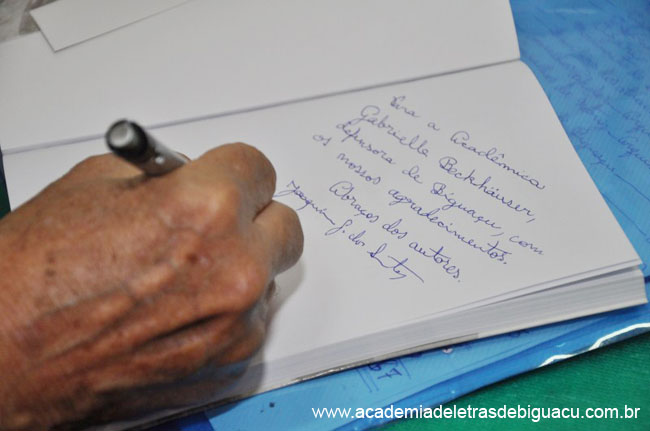 Para a Acadêmica
Gabrielle Beckhäuser,
defensora de Biguaçu, com
os nossos agradecimentos.
Abraços dos autores.
Joaquim G. dos Santos
www.academiadeletrasdebiguacu.com.br